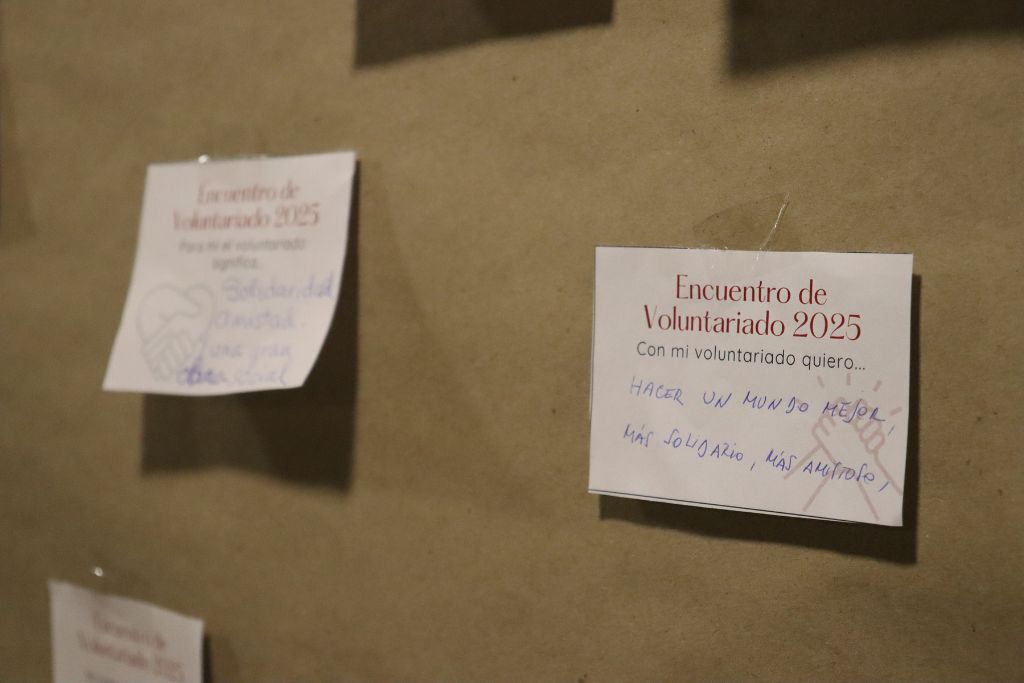 Encuentro de
Voluntariado 2025
Para mi el voluntariado
significa...
Solidaridad
amistad.
una gran
obra social
Encuentro de
Voluntariado 2025
Con mi voluntariado quiero...
HACER UN MUNDO MEJOR,
MÁS SOLIDARIO, MÁS AMISTOSO,
Encuentro de
Voluntariado 2025